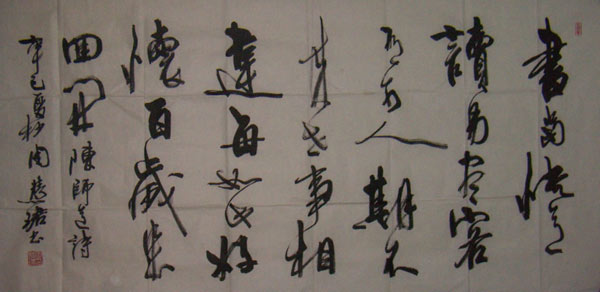 書當快意
讀易盡客
有可人期不
來世事相
違每如此好
懷百歲幾
回開 陳師道詩
辛巳夏杪周慧珺書